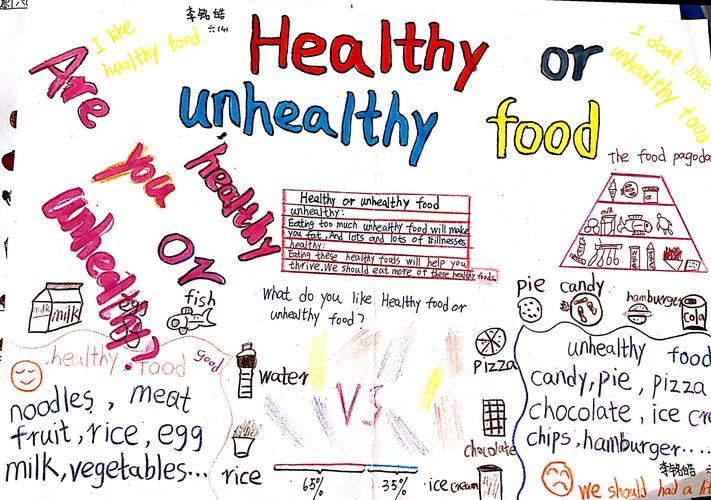 李铭皓
六(4)
I like
healthy food
Healthy or
unhealthy food
I don't like
unhealthy food
Are
you
healthy
or
unhealthy?
The food pagoda
milk
Healthy or unhealthy food
unhealthy:
Eating too much unhealthy food will make
you fat, And lots and lots of illnesses
healthy:
Eating these healthy foods will help you
thrive. We should eat more of these healthy foods
What do you like Healthy food or
unhealthy food?
milk
milk
egg
fish
healthy food good
noodles, meat
fruit, rice, egg
milk, vegetables...
water
rice
VS
65% 35%
pie candy
hamburger
cola
pizza
chocolate
ice cream
unhealthy food
candy, pie, pizza
chocolate, ice cre
chips, hamburger....
李铭皓
we should had a lit